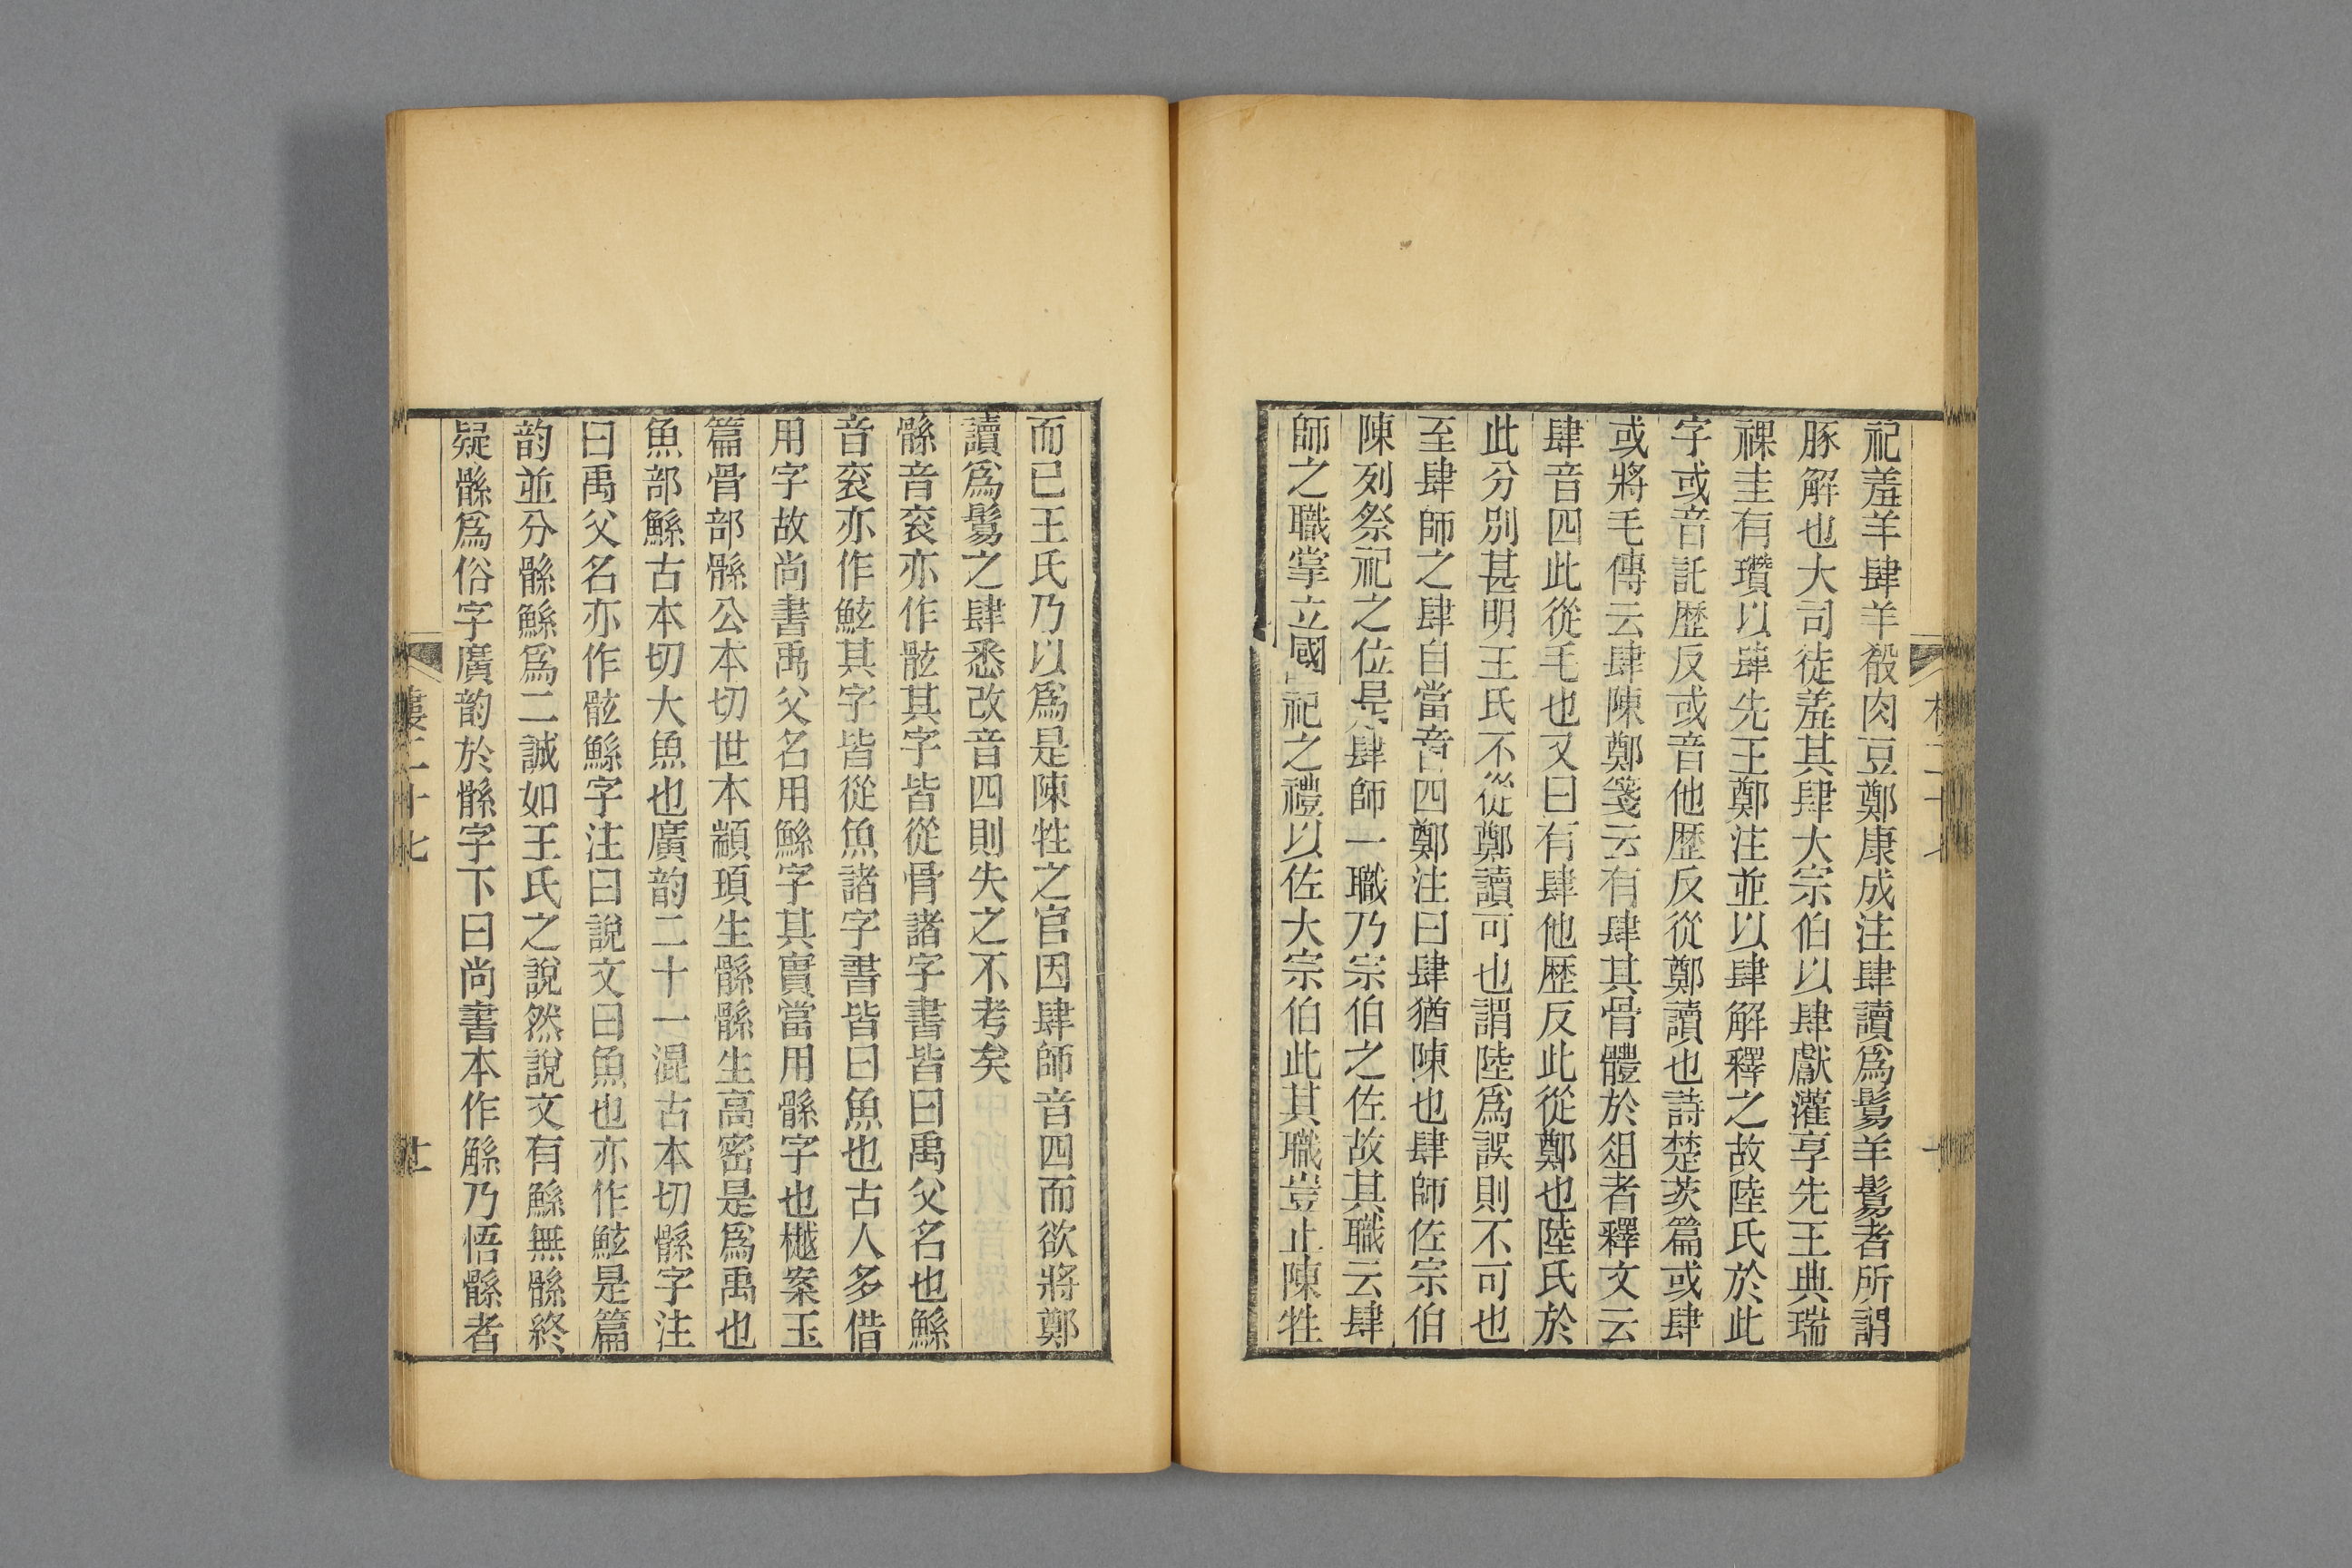 祀羞羊肆羊殽肉豆鄭康成注肆讀爲鬄羊鬄者所謂
豚解也大司徒羞其肆大宗伯以肆獻灌享先王典瑞
祼圭有瓚以肆先王鄭注並以肆解釋之故陸氏於此
字或音託歷反或音他歷反從鄭讀也詩楚茨篇或肆
或將毛傳云肆陳鄭箋云有肆其骨體於俎者釋文云
肆音四此從毛也又曰有肆他歷反此從鄭也陸氏於
此分別甚明王氏不從鄭讀可也謂陸爲誤則不可也
至肆師之肆自當音四鄭注曰肆猶陳也肆師佐宗伯
陳列祭祀之位是肆師一職乃宗伯之佐故其職云肆
師之職掌立國祀之禮以佐大宗伯此其職豈止陳牲
而已王氏乃以爲是陳牲之官因肆師音四而欲將鄭
讀爲鬄之肆悉改音四則失之不考矣
鯀音衮亦作骸其字皆從骨諸字書皆曰禹父名也鯀
音衮亦作鮌其字皆從魚諸字書皆曰魚也古人多借
用字故尚書禹父名用鯀字其實當用䯣字也樾案玉
篇骨部䯣公本切世本顓頊生䯣䯣生高密是爲禹也
魚部鯀古本切大魚也廣韵二十一混古本切䯣字注
曰禹父名亦作骸鯀字注曰說文曰魚也亦作鮌是篇
韵並分䯣鯀爲二誠如王氏之說然說文有鯀無䯣終
疑䯣爲俗字廣韵於䯣字下曰尚書本作鯀乃悟䯣者
樓二十七
十一